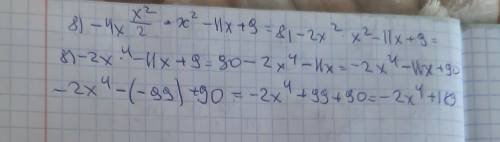 8) -4x x²/2 · x² -11x+9 = 8) -2x² · x² -11x+9 =
8) -2x·⁴ -11x+9 = 90 -2x⁴ -11x = -2x⁴ -11x+90
-2x⁴ -(-99) +90 = -2x⁴ +99+90 = -2x⁴ +189